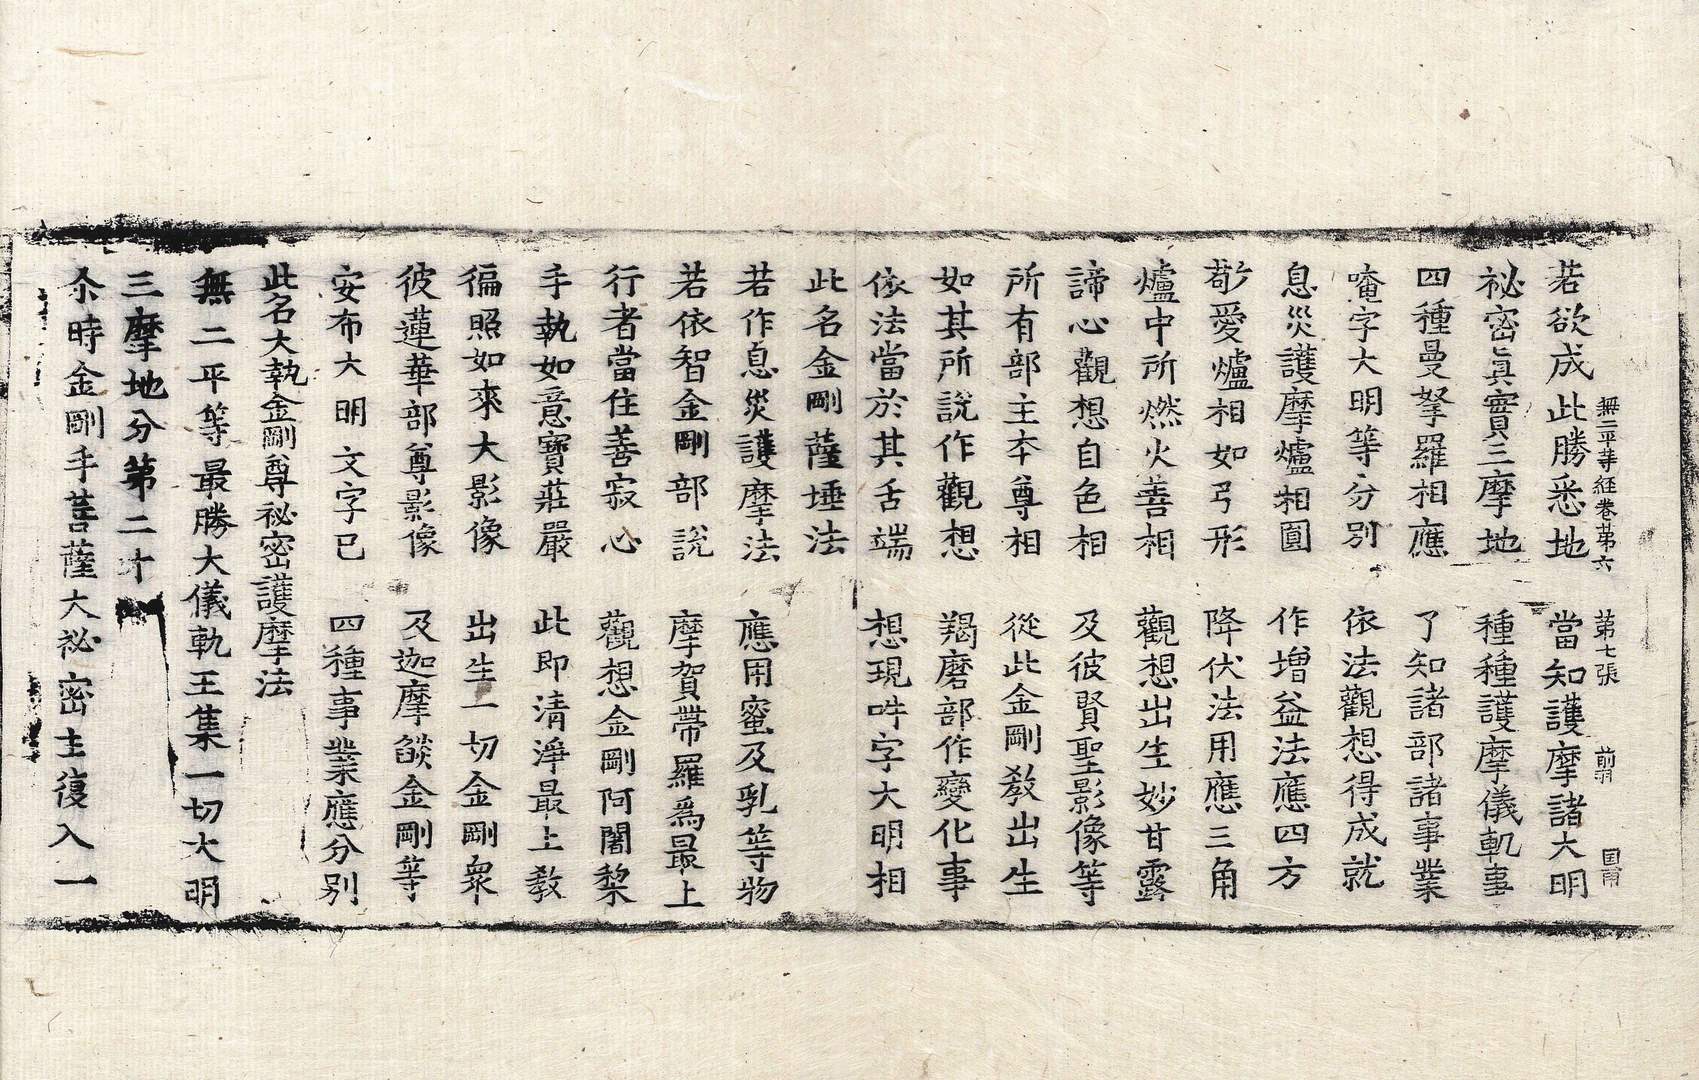 若欲成此勝悉地　當知護摩諸大明
無二平等経卷第六　第七張　前羽　国甫
祕密眞實三摩地　種種護摩儀軌事
四種曼拏羅相應　了知諸部諸事業
唵字大明等分別　依法觀想得成就
息災護摩爐相圓　作增益法應四方
敬愛爐相如弓形　降伏法用應三角
爐中所燃火善相　觀想出生妙甘露
諦心觀想自色相　及彼賢聖影像等
所有部主夲尊相　從此金剛教出生
如其所說作觀想　羯磨部作變化事
依法當於其舌端　想現吽字大明相
此名金剛薩埵法
若作息災護摩法　應用蜜及乳等物
若依智金剛部說　摩賀帶羅爲最上
行者當住善寂心　觀想金剛阿闍棃
手執如意寶莊嚴　此即清淨最上教
徧照如來大影像　出生一切金剛衆
彼蓮華部尊影像　及迦摩燄金剛等
安布大明文字已　四種事業應分別
此名大執金剛尊祕密護摩法
無二平等最勝大儀軌王集一切大明
三摩地分第二十
尒時金剛手菩薩大祕密主復入一